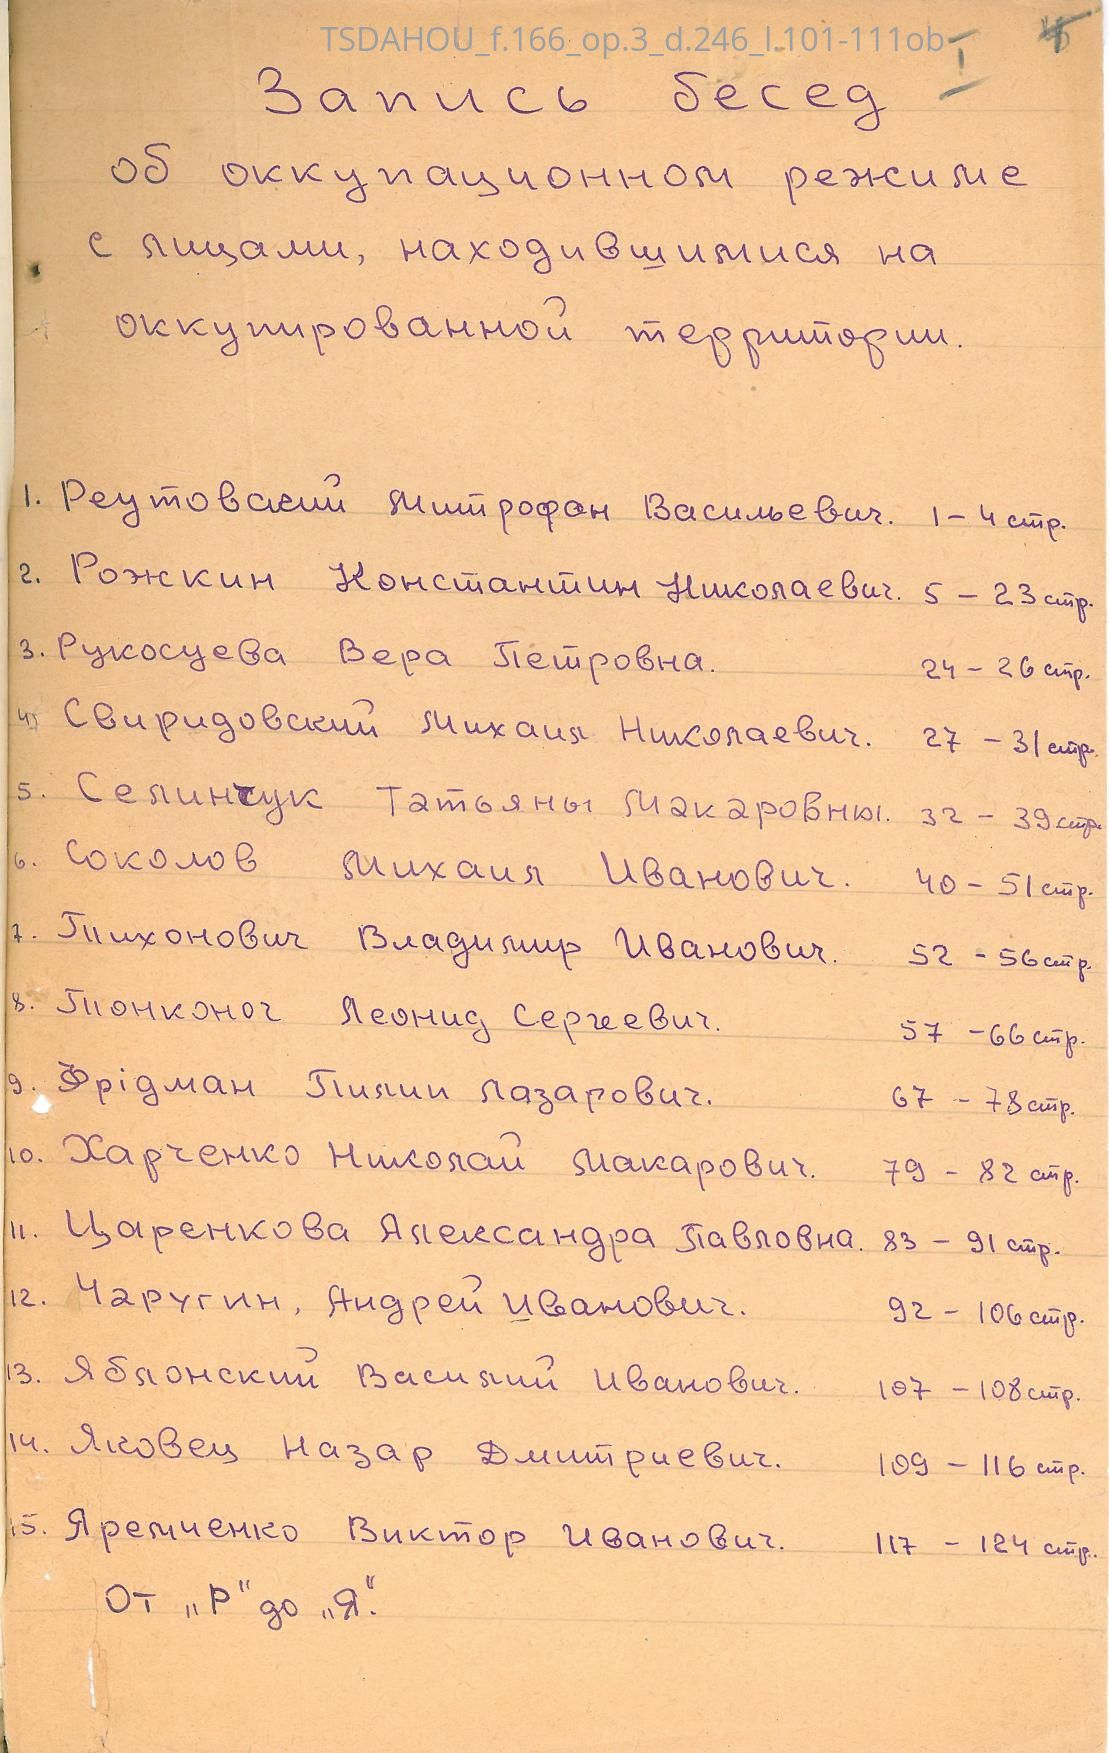 TSDAHOU_f.166_op.3_d.246_l.101-111ob
I
Запись бесед
об оккупационном режиме
с лицами, находившимися на
оккупированной территории.
1. Реутовский Митрофан Васильевич. 1 – 4 стр.
2. Рожкин Константин Николаевич. 5 – 23 стр.
3. Рукосуева Вера Петровна. 24 – 26 стр.
4. Свиридовский Михаил Николаевич. 27 – 31 стр.
5. Селинчук Татьяны Макаровны. 32 – 39 стр.
6. Соколов Михаил Иванович. 40 – 51 стр.
7. Тихонович Владимир Иванович. 52 – 56 стр.
8. Тонконог Леонид Сергеевич. 57 – 66 стр.
9. Фрідман Пилип Лазарович. 67 – 78 стр.
10. Харченко Николай Макарович. 79 – 82 стр.
11. Царенкова Александра Павловна. 83 – 91 стр.
12. Чаругин, Андрей Иванович. 92 – 106 стр.
13. Яблонский Василий Иванович. 107 – 108 стр.
14. Яковец Назар Дмитриевич. 109 – 116 стр.
15. Яремченко Виктор Иванович. 117 – 124 стр.
От „Р" до „Я".